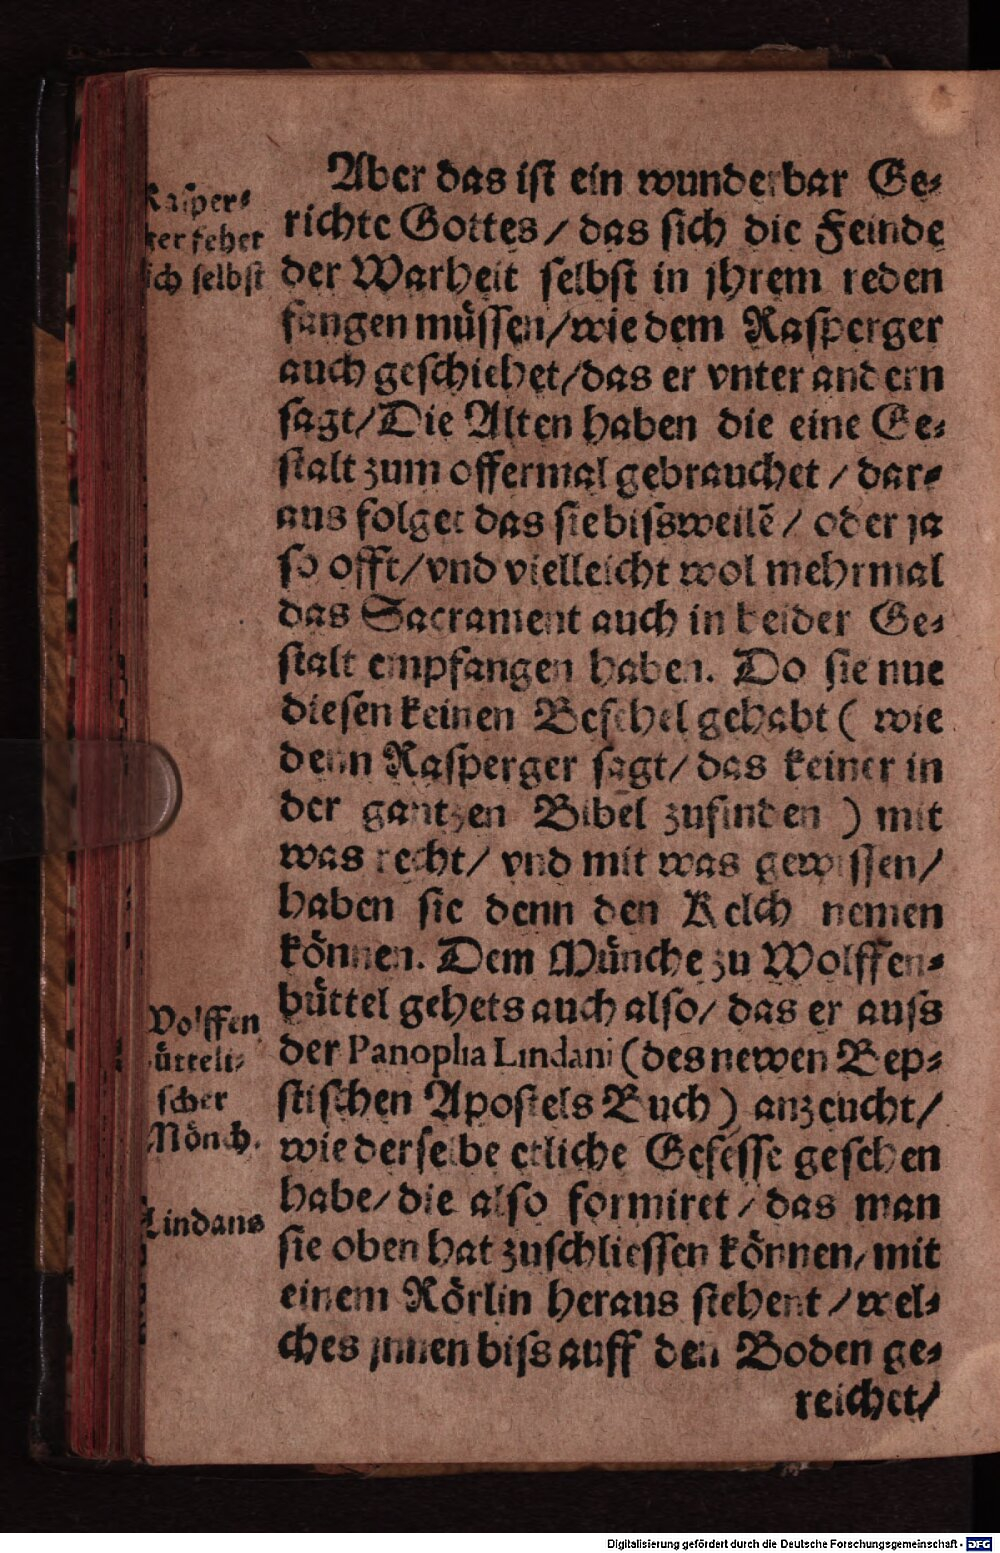 Aber das ist ein wunderbar Ge⸗
richte Gottes / das sich die Feinde
der Warheit selbst in jhrem reden
fangen müssen / wie dem Rasperger
auch geschiehet / das er vnter andern
sagt / Die Alten haben die eine Ge⸗
stalt zum offermal gebrauchet / dar⸗
aus folget das sie bissweilē / oder ja
so offt / vnd vielleicht wol mehrmal
das Sacrament auch in beider Ge⸗
stalt empfangen haben. Do sie nue
diesen keinen Befehel gehabt ( wie
denn Rasperger sagt / das keiner in
der gantzen Bibel zufinden ) mit
was recht / vnd mit was gewissen /
haben sie denn den Kelch nemen
können. Dem Münche zu Wolffen⸗
büttel gehets auch also / das er auss
der Panoplia Lindani ( des newen Bep⸗
stischen Apostels Buch ) anzeucht /
wie derselbe etliche Gefesse gesehen
habe / die also formiret / das man
sie oben hat zuschliessen können / mit
einem Rörlin heraus stehent / wel⸗
ches jnnen biss auff den Boden ge⸗
reichet /
Rasper⸗
ger fehet
sich selbst
Wolffen
bütteli⸗
scher
Mönch.
Lindans
Digitalisierung gefördert durch die Deutsche Forschungsgemeinschaft - DFG